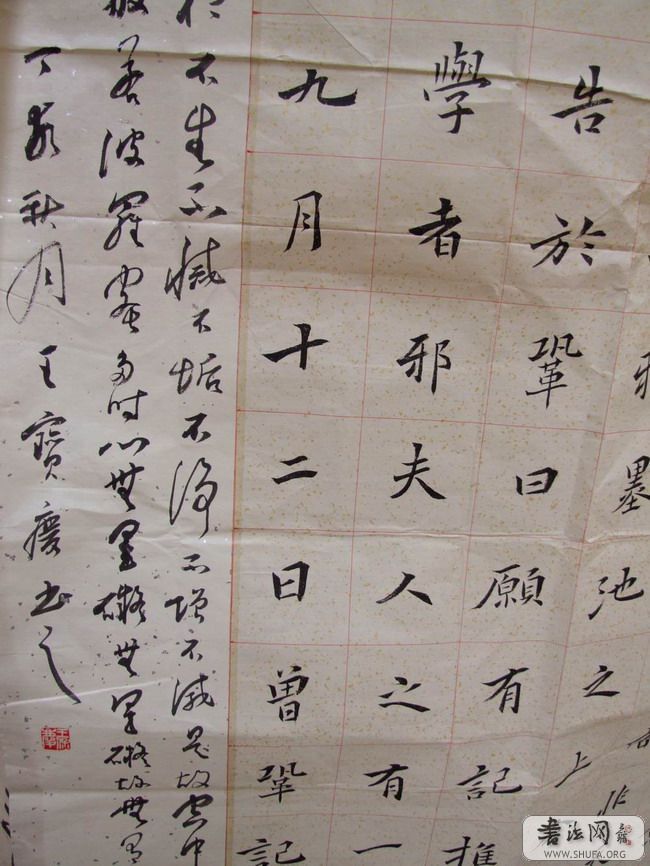 邪墨池之上
告於鞏曰願有記推
學者邪夫人之有一
九月十二日曾鞏記
不生不滅不垢不淨不增不減是故空中
般若波羅蜜多故心無罣礙無罣礙故無有
丁亥秋月王寶慶書之
書法网
WWW.SHUFA.ORG